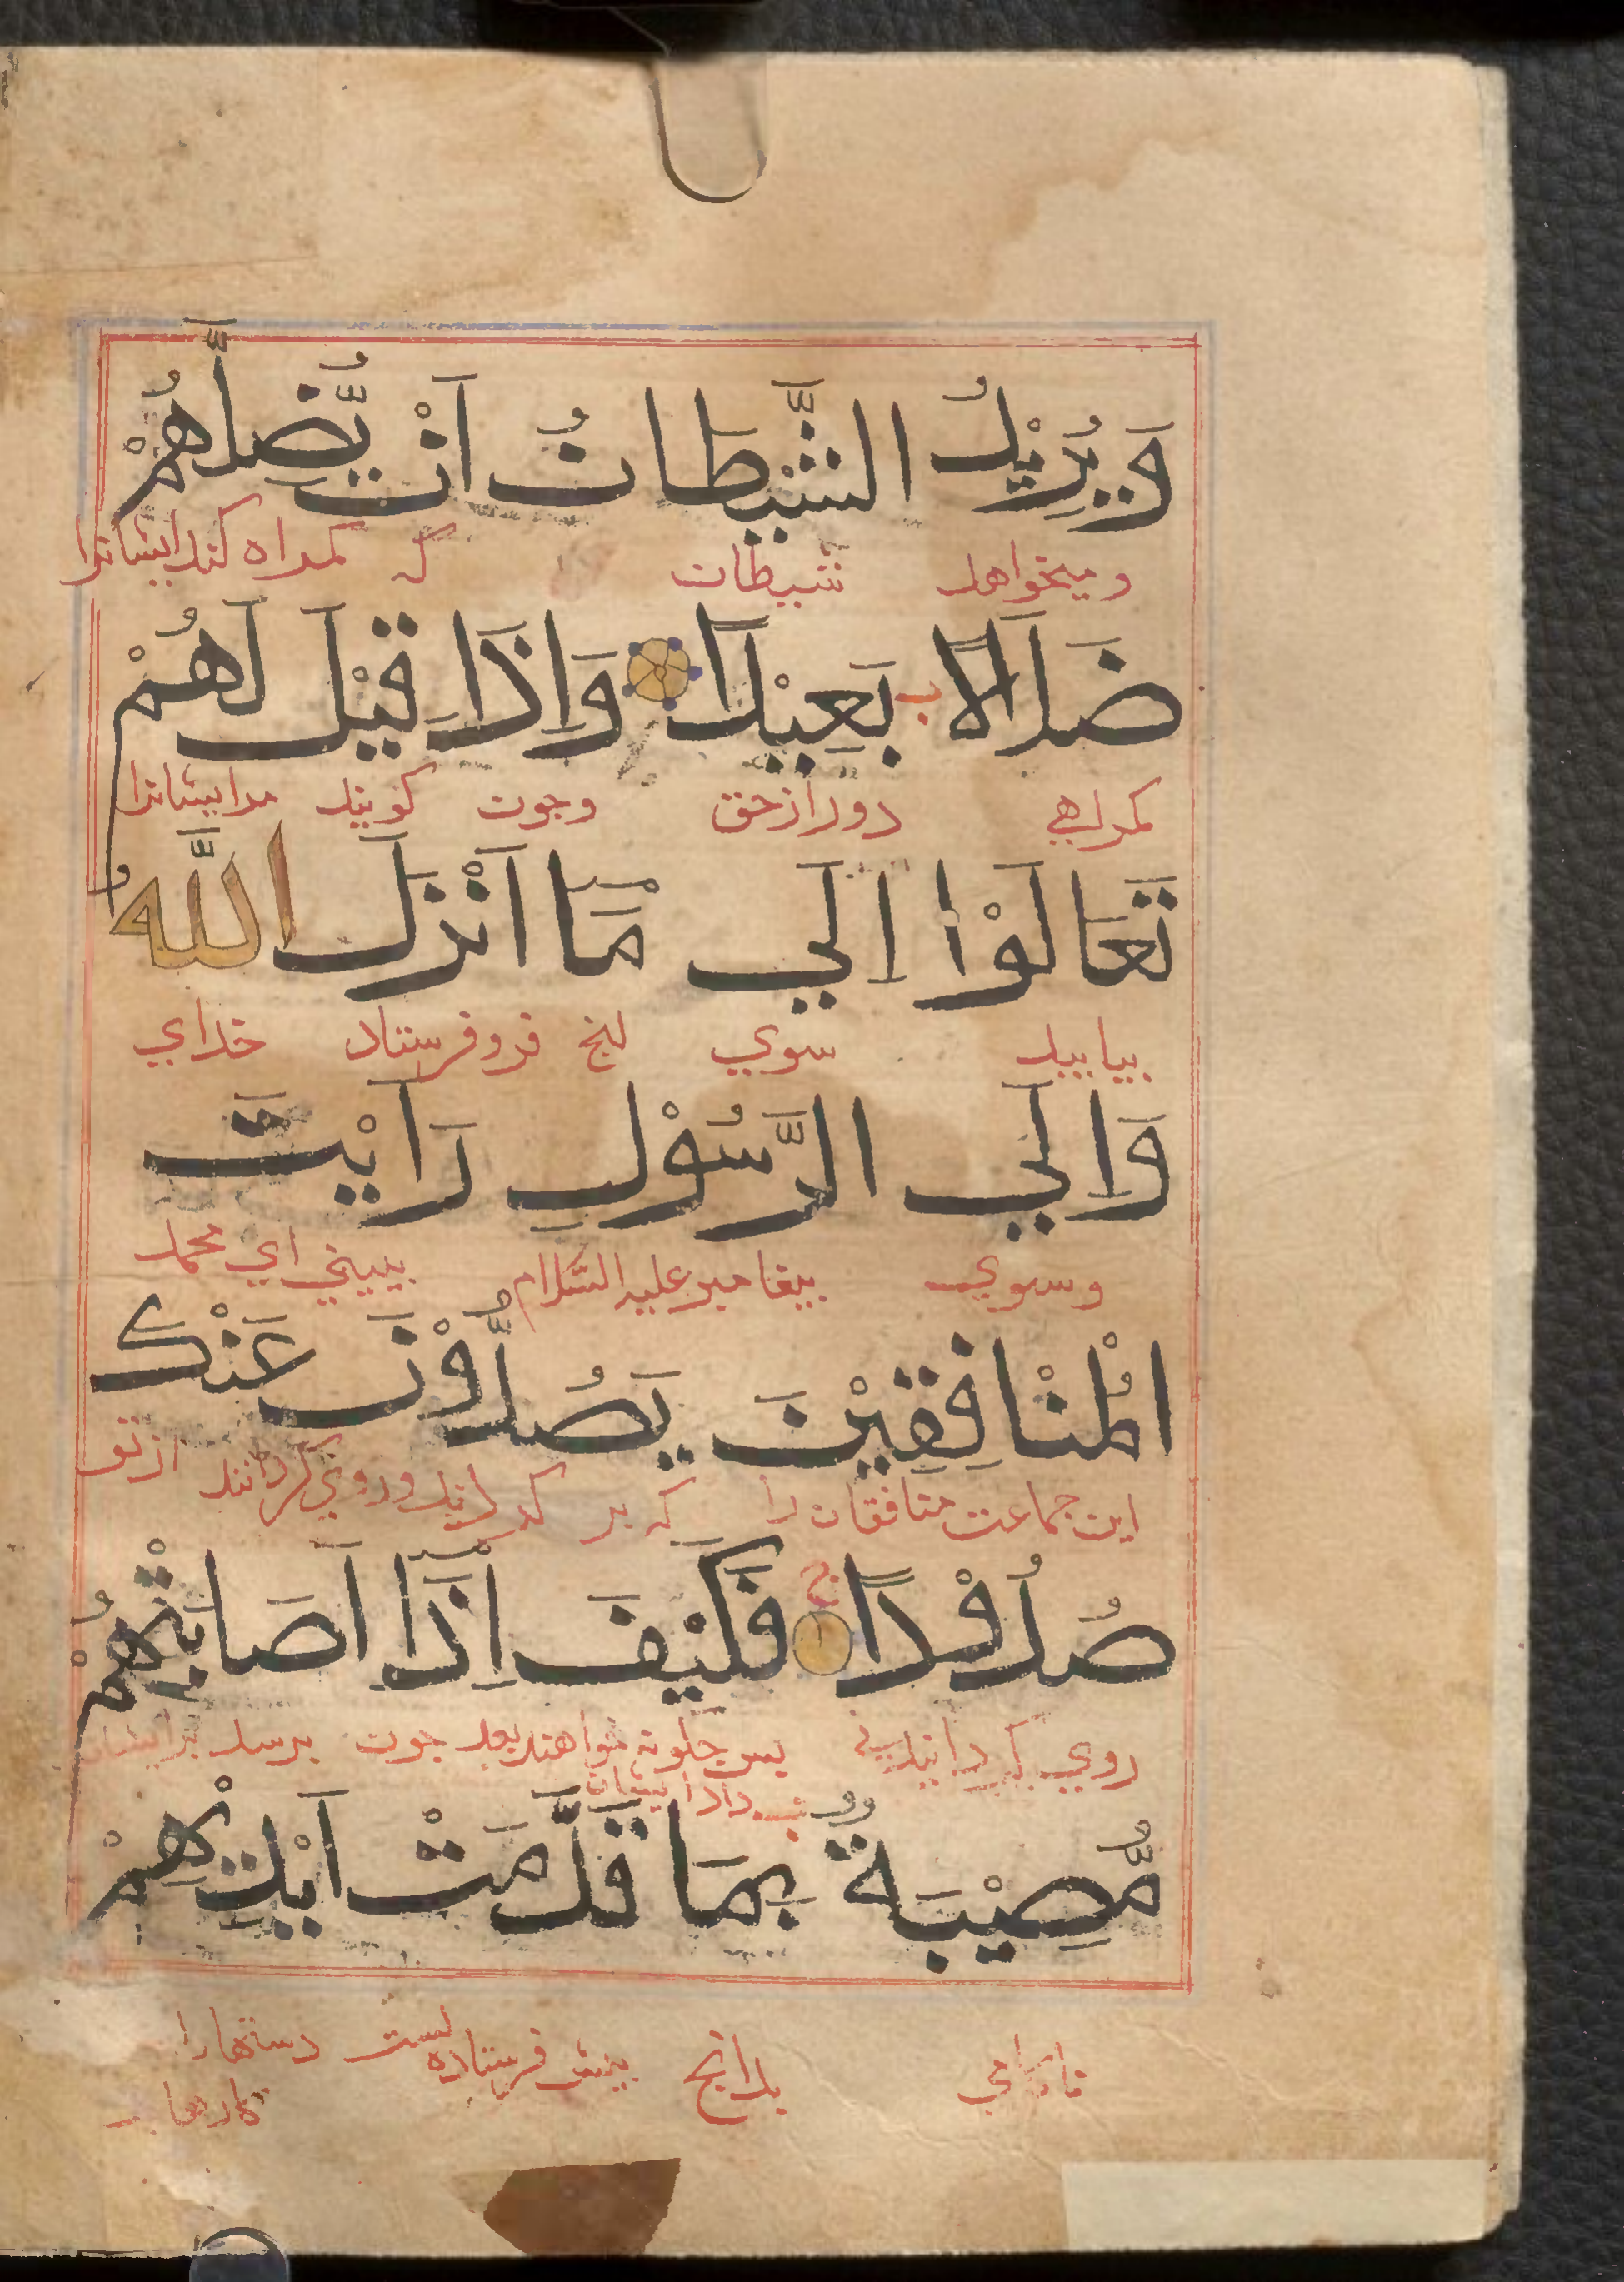 وَيُرِيْدُ الشَّيْطَانُ اَنْ يُّضِلَّهُمْ
و میخواهد شیطان که کمراه کند ایشانرا
ضَلَالًا بَعِيْدًا وَاِذَا قِيْلَ لَهُمْ
کمراهی دور از حق و چون کویند مر ایشانرا
تَعَالَوْا اِلَي مَا اَنْزَلَ اللَّهُ
بیایید سوي انج فرو فرستاد خداي
وَاِلَي الرَّسُوْلِ رَاَيْتَ
و سوي بیغامبر علیه السّلام ببیني اي محمد
الْمُنَافِقِيْنَ يَصُدُّوْنَ عَنْكَ
این جماعت منافقان را که بر کردانید و روي کردانند از تو
صُدُوْدًا فَكَيْفَ اِذَا اَصَابَتْهُمْ
روي کردانیدني بس چکونه خواهند بود چون برسد بر ایشان
مُّصِيْبَةٌ بِمَا قَدَّمَتْ اَيْدِيْهِمْ
ناکامي بدانج بیش فرستاده است دستهارا
کارها